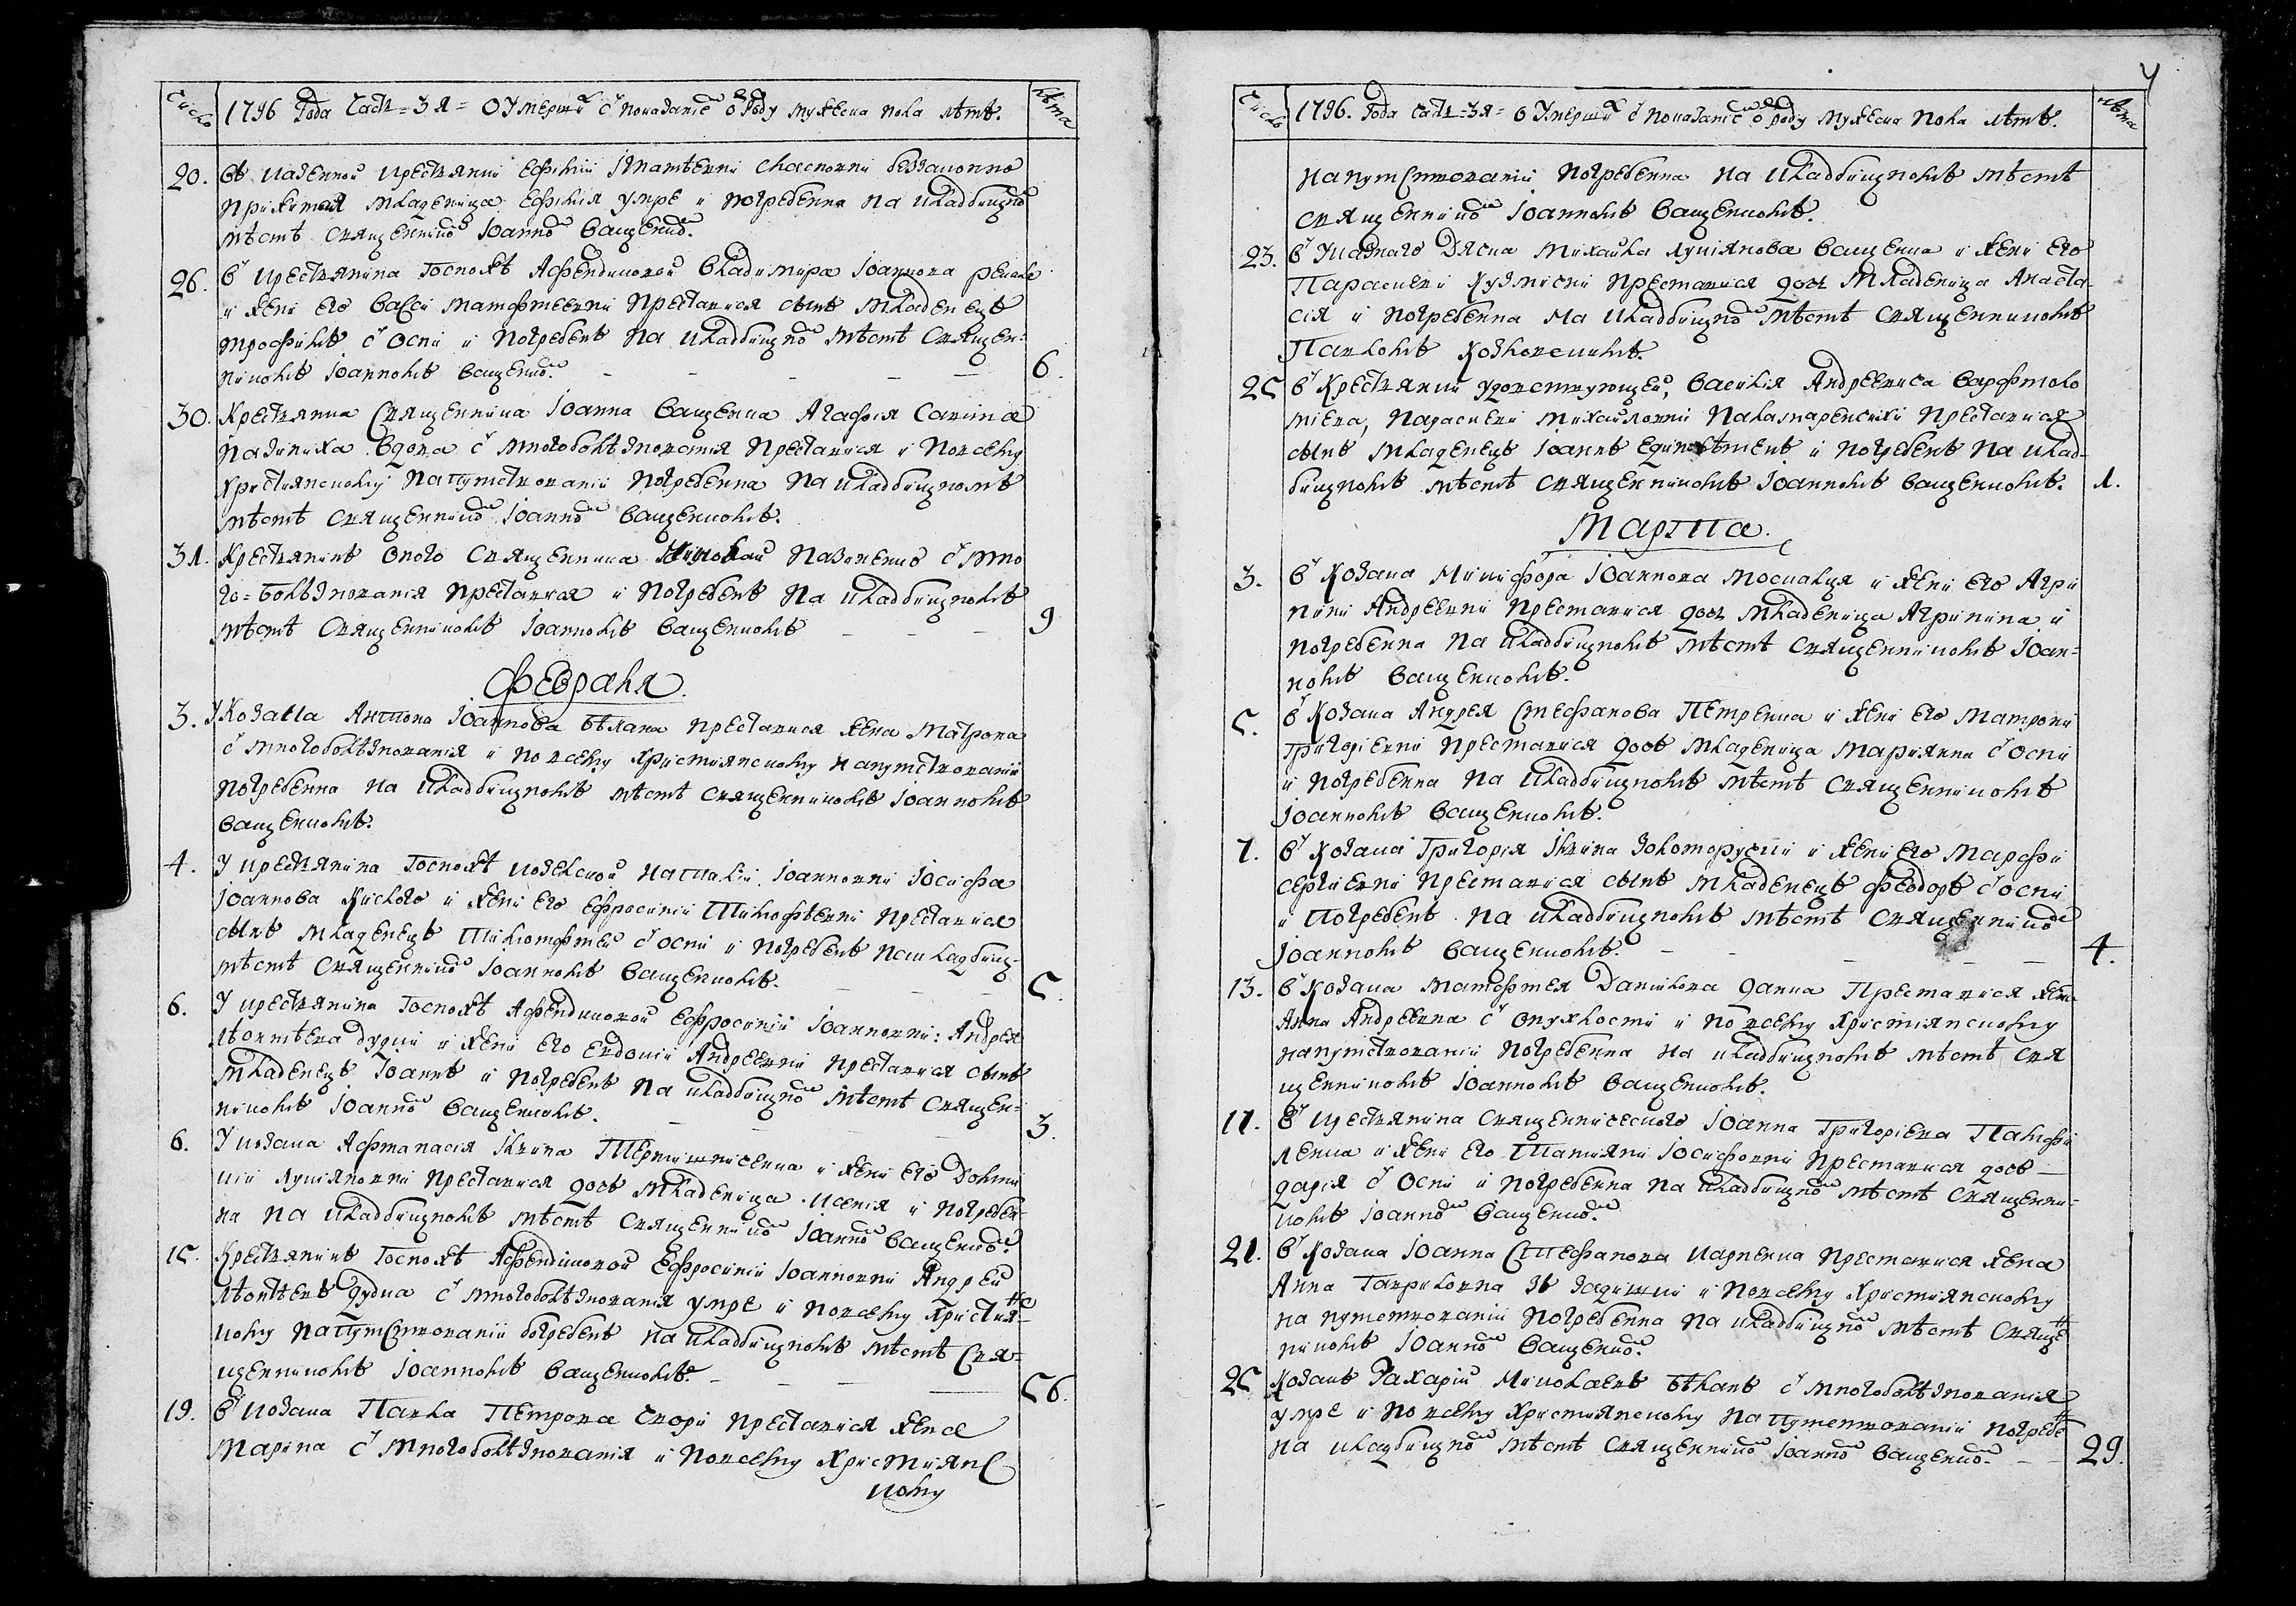 Число
1796 Года Часть=3Я= О Умершихъ съ показаніемъ о роду мужеска пола лѣтъ.
Лѣта
20. въ казенной крестянки Ефиміи Игнатьевни беззаконно
прижитая младеница Ефимия умре и погребенна на кладбищномъ
мѣстѣ священникомъ Іоанномъ Ващенкомъ.
26. въ крестянина госпожѣ Афендиковой Владимира Іоаннова
и жени его Васси Матфѣевни преставися сынъ младенецъ
Трофимъ съ оспи и погребенъ на кладбищномъ мѣстѣ священ-
никомъ Іоанномъ Ващенкомъ. 6.
30. Крестянка священника Іоанна Ващенка Агафія Савина
вдова съ многоболѣзнования преставися и по всему
християнскому напутствованіи погребенна на кладбищномъ
мѣстѣ священникомъ Іоанномъ Ващенкомъ.
31. Крестянинъ оного священника Николай съ мно
го=болѣзнованія преставися и погребенъ на кладбищномъ
мѣстѣ священникомъ Іоанномъ Ващенкомъ 9
Февраля.
3. У козака Антона Іоаннова Бѣлана преставися жена Матрона
съ многоболѣзнования и по всему християнскому напутствованіи
погребенна на кладбищномъ мѣстѣ священникомъ Іоанномъ
Ващенкомъ.
4. У крестянина госпожѣ Козелской Наталіи Іоанновни Іосифа
Іоаннова Кислого и жени его Ефросиніи Тимофѣевни преставися
сынъ младенецъ Тимотфтей съ оспи и погребенъ на кладбищ-
мѣстѣ священникомъ Іоанномъ Ващенкомъ. 5.
6. У крестянина госпожѣ Афендиковой Ефросиніи Іоанновни: Андрея
Леонтѣева Дудки и жени его Евдокіи Андреевни преставися сынъ
младенецъ Іоаннъ и погребенъ на кладбищномъ мѣстѣ священ-
никомъ Іоанномъ Ващенкомъ. 3.
6. У козака Афтанасія и жени его Домни
кіи Лукіяновни преставися дочь младеница Ксенія и погребен-
на на кладбищномъ мѣстѣ священникомъ Іоанномъ Ващенкомъ.
15. Крестянинъ госпожѣ Афендиковой Ефросиніи Іоанновни Андрей
Леонтѣевъ Дудка съ многоболѣзнования умре и по всему християн-
кому напутствованіи погребенъ на кладбищномъ мѣстѣ свя=
щенникомъ Іоанномъ Ващенкомъ. 56.
19. въ козака Павла Петрова преставися жена
Марина съ многоболѣзнования и по всему християнс
кому
Число
1796. Года Часть=3Я= о Умершихъ съ показаніемъ о роду мужеска пола лѣтъ.
Лѣта
напутствованіи погребенна на кладбищномъ мѣстѣ
священникомъ Іоанномъ Ващенкомъ.
23. въ указного дяка Михайла Лукіянова Ващенка и жени его
Параскеви Кузмовни преставися дочь младеница Анаста
сія и погребенна на кладбищномъ мѣстѣ священникомъ
Павломъ
25 въ крестянки Василія Андреевича Варфтоло
миева, Параскеви Михайловни преставися
сынъ младенецъ Іоаннъ единолѣтенъ и погребенъ на клад-
бищномъ мѣстѣ священникомъ Іоанномъ Ващенкомъ. 1.
Марта.
3. въ козака Никифора Іоаннова Москальця и жени его Агри
пини Андреевни преставися дочь младеница Агрипина и
погребенна на кладбищномъ мѣстѣ священникомъ Іоан=
номъ Ващенкомъ.
5. въ козака Андрея Стефанова Петренка и жени его Матрони
Григоріевни преставися дочь младеница Мариянна съ оспи
и погребенна на кладбищномъ мѣстѣ священникомъ
Іоанномъ Ващенкомъ.
7. въ козака Григорія и жени его Марфи
Сергиевни преставися сынъ младенецъ Феодоръ съ оспи
и погребенъ на кладбищномъ мѣстѣ священникомъ
Іоанномъ Ващенкомъ. 4.
13. въ козака Матфтея Данилова преставися жена
Анна Андреевна съ опухлости и по всему християнскому
напутствованіи погребенна на кладбищномъ мѣстѣ свя
щенникомъ Іоанномъ Ващенкомъ.
17. въ крестянина священнического Іоанна Григоріева Памфи
ленка и жени его Татияни Іосифовни преставися дочь
Дарія съ оспи и погребенна на кладбищномъ мѣстѣ священни-
комъ Іоанномъ Ващенкомъ.
21. въ козака Іоанна Стефанова Карпенка преставися жена
Анна Гавриловна зъ задишки и по всему християнскому
напутствованіи погребенна на кладбищномъ мѣстѣ священ
никомъ Іоанномъ Ващенкомъ.
25 Козакъ Захарій Николаевъ Бѣланъ съ многоболѣзнования
умре и по всему християнскому напутствованіи погребенъ
на кладбищномъ мѣстѣ священникомъ Іоанномъ Ващенкомъ. 29.